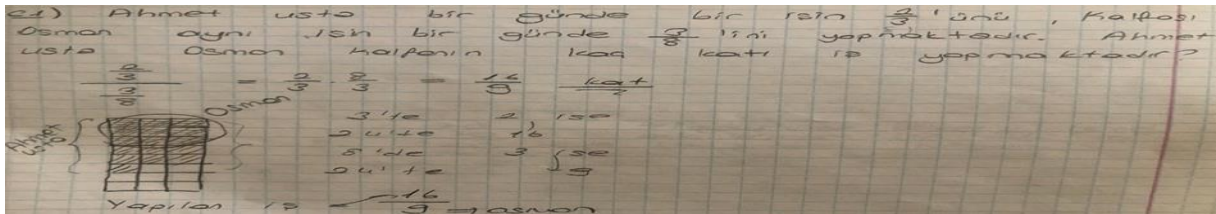 c1) Ahmet usta bir günde bir işin 2/3 'ünü , Kalfası
Osman aynı işin bir günde 3/8 'ini yapmaktadır. Ahmet
usta Osman kalfanın kaç katı iş yapmaktadır?
2/3 / 3/8 = 2/3 . 8/3 = 16/9 kat
Osman
Ahmet usta
3'te 2 ise
24'te 16
8'de 3 ise
24'te 9
Yapılan iş = 16/9 → osman